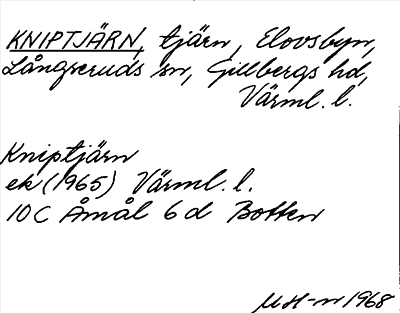 KNIPTJÄRN, tjärn, Elovsbyn,
Långseruds sn, Gillbergs hd,
Värml. l.
Kniptjärn
ek (1965) Värml. l.
10 C Åmål 6 d Botten
MH-n 1968